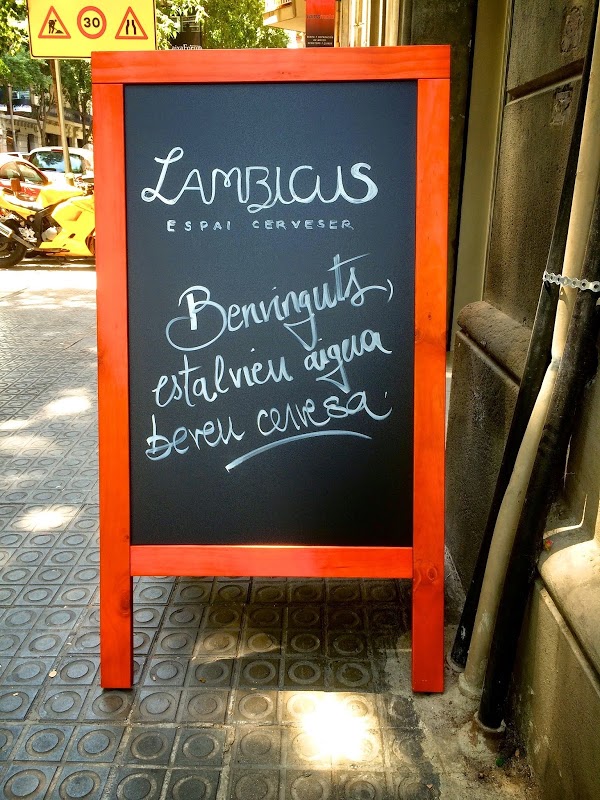 30
CaixaForum
LAMBICUS
ESPAI CERVESER
Benvinguts,
estalvieu aigua
beveu cervesa.